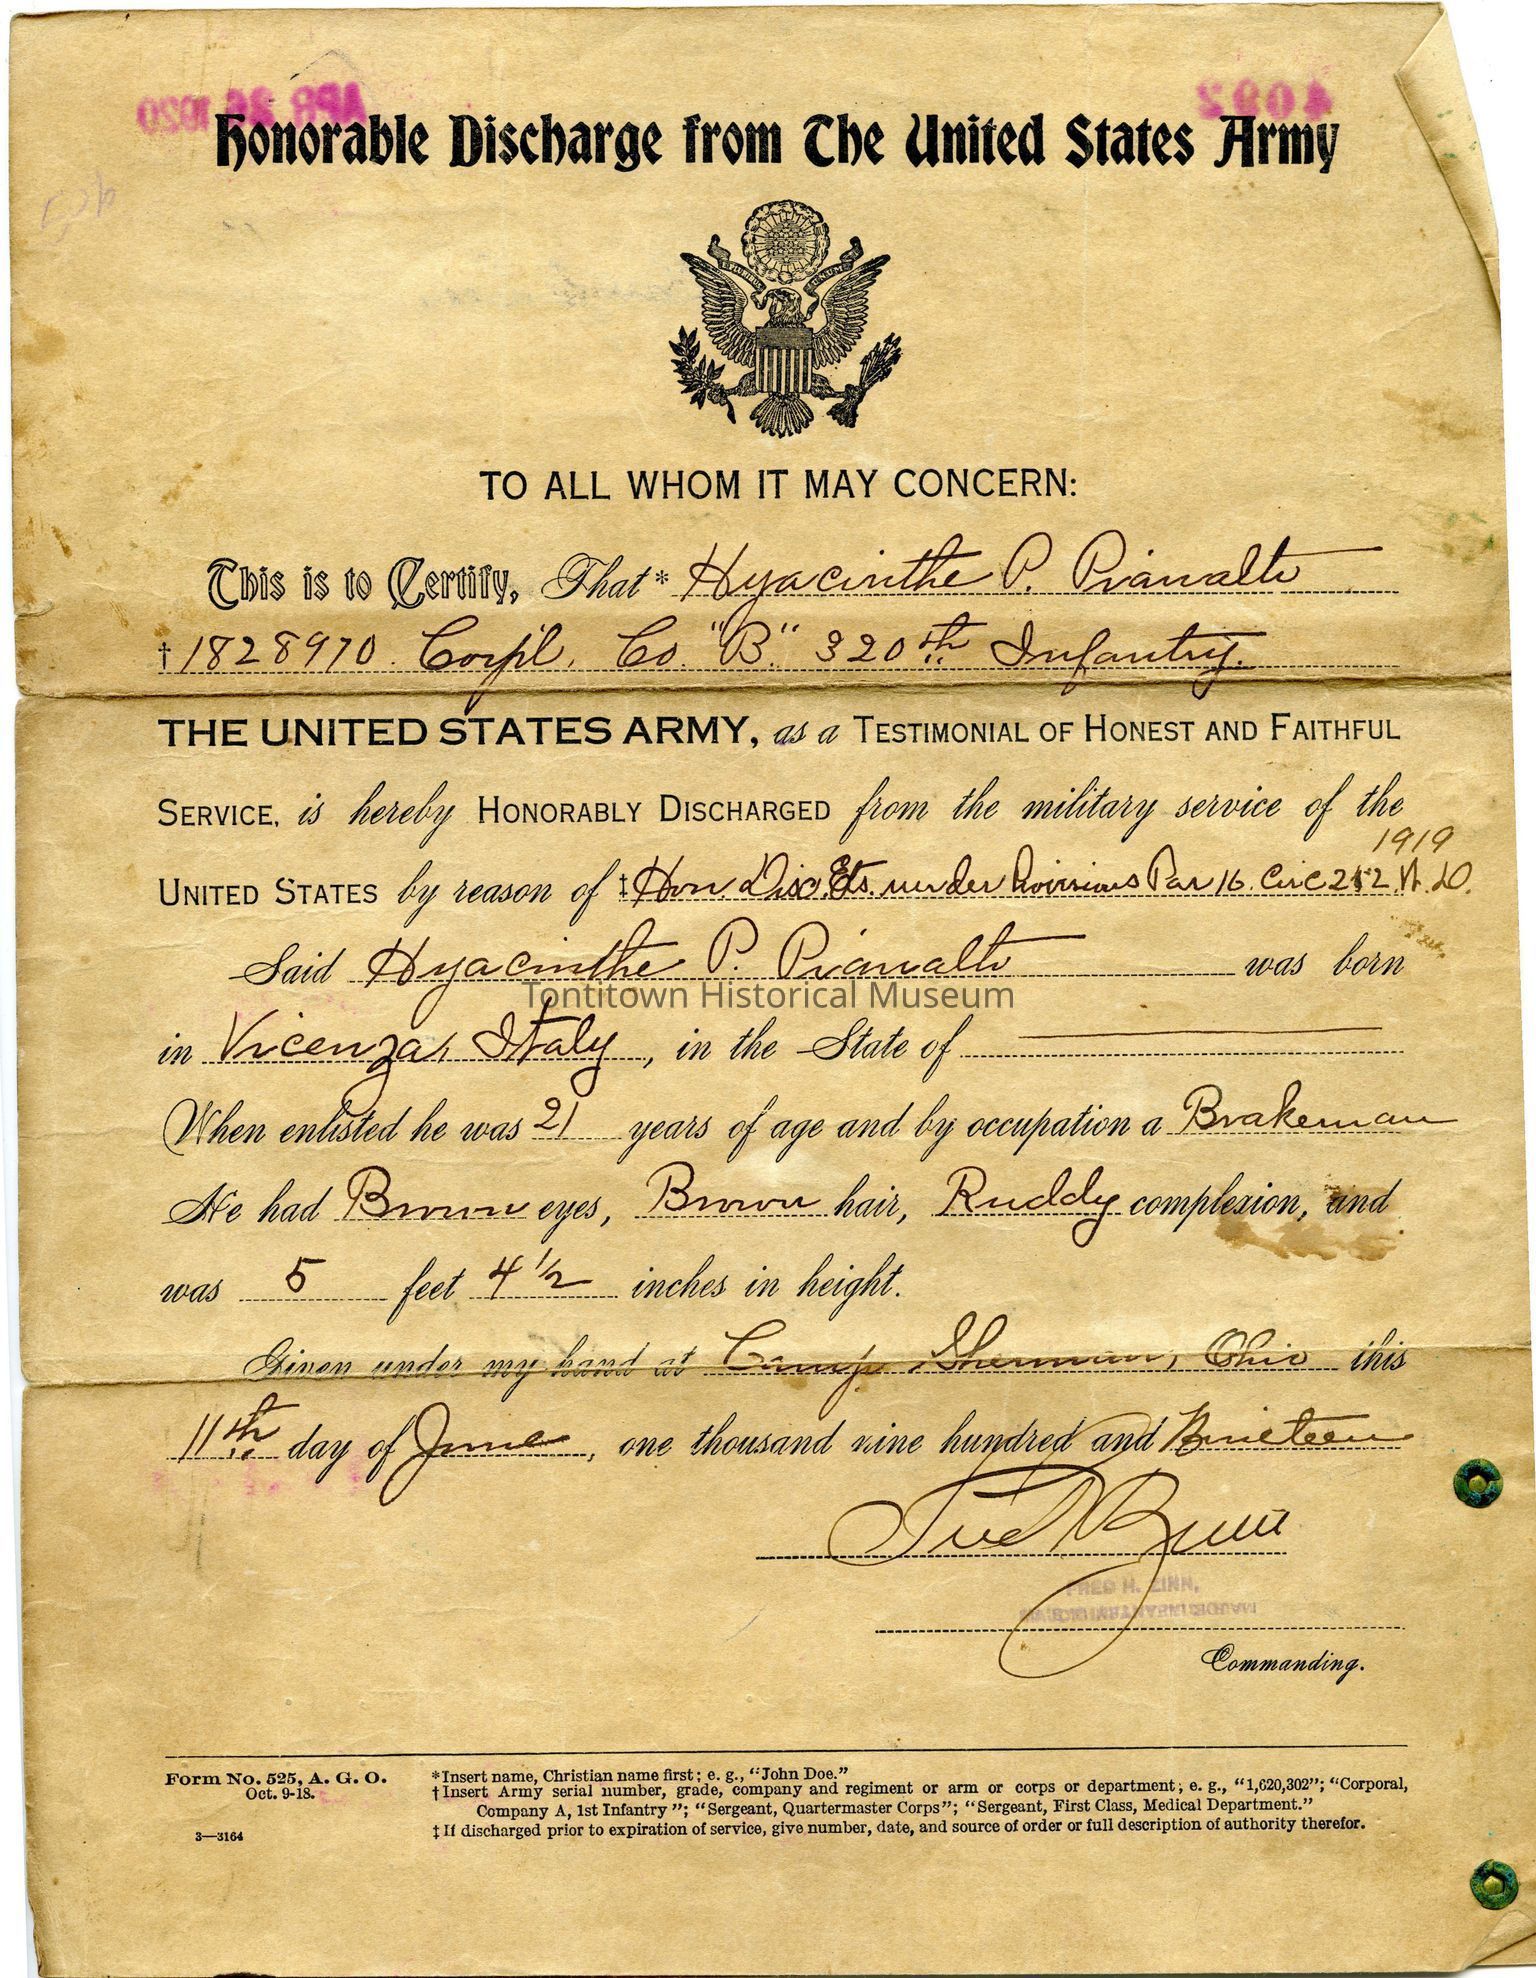 APR 26 1920
4092
Honorable Discharge from The United States Army
TO ALL WHOM IT MAY CONCERN:
This is to Certify, That * Hyacinthe P. Pianalto
† 1828970. Corp'l. Co. "B." 320th Infantry.
THE UNITED STATES ARMY, as a TESTIMONIAL OF HONEST AND FAITHFUL
SERVICE, is hereby HONORABLY DISCHARGED from the military service of the
1919
UNITED STATES by reason of ‡ Hon. Disc. Ets. under Provisions Par 16. Circ 252 W.D.
Said Hyacinthe P. Pianalto was born
Tontitown Historical Museum
in Vicenza, Italy, in the State of
When enlisted he was 21 years of age and by occupation a Brakeman
He had Brown eyes, Brown hair, Ruddy complexion, and
was 5 feet 4 1/2 inches in height.
Given under my hand at Camp Sherman, Ohio this
11th day of June, one thousand nine hundred and Nineteen
Fred H Zinn
FRED H. ZINN,
Commanding.
Form No. 525, A. G. O.
Oct. 9-18.
3—3164
*Insert name, Christian name first; e. g., "John Doe."
†Insert Army serial number, grade, company and regiment or arm or corps or department; e. g., "1,620,302"; "Corporal,
Company A, 1st Infantry"; "Sergeant, Quartermaster Corps"; "Sergeant, First Class, Medical Department."
‡If discharged prior to expiration of service, give number, date, and source of order or full description of authority therefor.